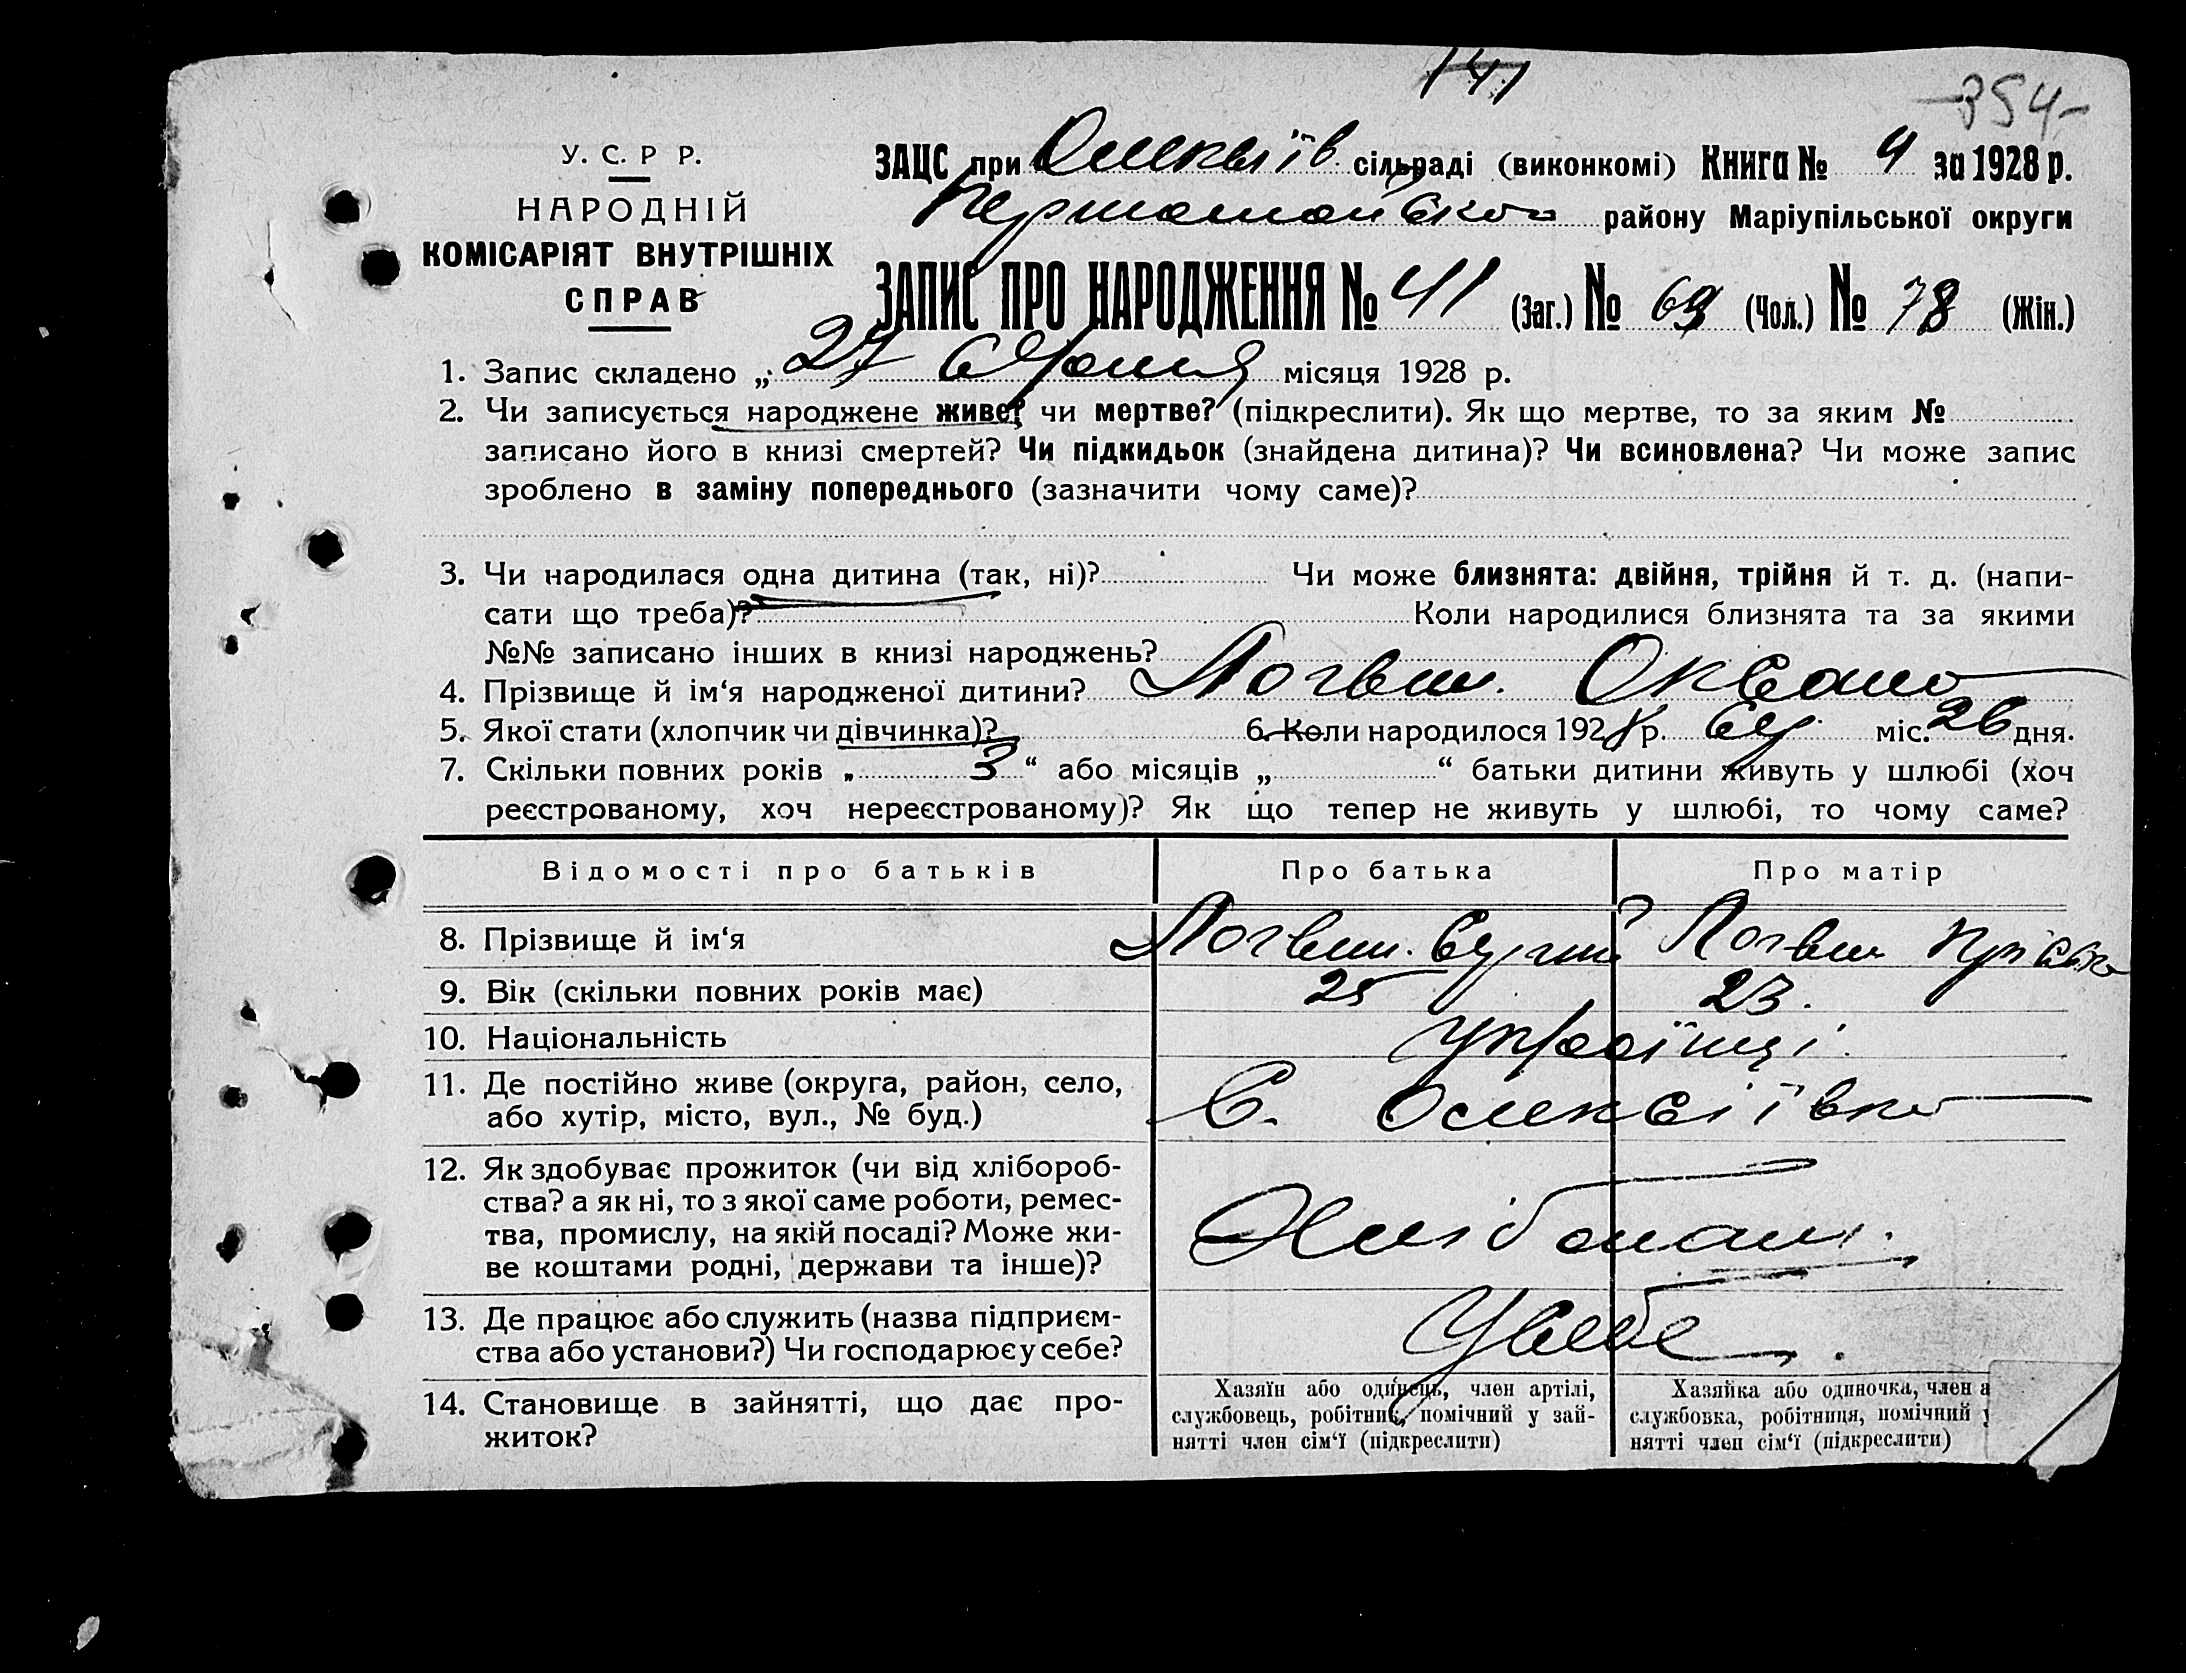 141
354
У. С. Р Р.
НАРОДНІЙ
КОМІСАРІЯТ ВНУТРІШНІХ
СПРАВ
ЗАЦС при Олексіїв. сільраді (виконкомі) Книга № 4 за 1928 р.
Першотравн району Маріупільської округи
ЗАПИС ПРО НАРОДЖЕННЯ № 41 (Заг.) № 63 (Чол.) № 78 (Жін.)
1. Запис складено „ 27 Січня місяця 1928 р.
2. Чи записується народжене живе? чи мертве? (підкреслити). Як що мертве, то за яким №
записано його в книзі смертей? Чи підкидьок (знайдена дитина)? Чи всиновлена? Чи може запис
зроблено в заміну попереднього (зазначити чому саме)?
3. Чи народилася одна дитина (так, ні)? Чи може близнята: двійня, трійня й т. д. (напи-
сати що треба)? Коли народилися близнята та за якими
№№ записано інших в книзі народжень?
4. Прізвище й ім‘я народженої дитини? Логвин. Оксана
5. Якої стати (хлопчик чи дівчинка)? 6. Коли народилося 1928 р. міс. 26 дня.
7. Скільки повних років „ 3 “ або місяців „ “ батьки дитини живуть у шлюбі (хоч
реєстрованому, хоч нереєстрованому)? Як що тепер не живуть у шлюбі, то чому саме?
Відомості про батьків Про батька Про матір
8. Прізвище й ім‘я Логвин. Сергій Логвин
9. Вік (скільки повних років має) 25 23.
10. Національність Українці.
11. Де постійно живе (округа, район, село,
або хутір, місто, вул., № буд.) С. Олексіївка
12. Як здобуває прожиток (чи від хлібороб-
ства? а як ні, то з якої саме роботи, ремес-
тва, промислу, на якій посаді? Може жи-
ве коштами родні, держави та інше)?
13. Де працює або служить (назва підприєм-
ства або установи?) Чи господарює у себе? У себе.
14. Становище в зайнятті, що дає про-
житок?
Хазяїн або одинець, член артілі,
службовець, робітник, помічний у зай-
нятті член сім‘ї (підкреслити)
Хазяйка або одиночка, член а
службовка, робітниця, помічний у
нятті член сім‘ї (підкреслити)